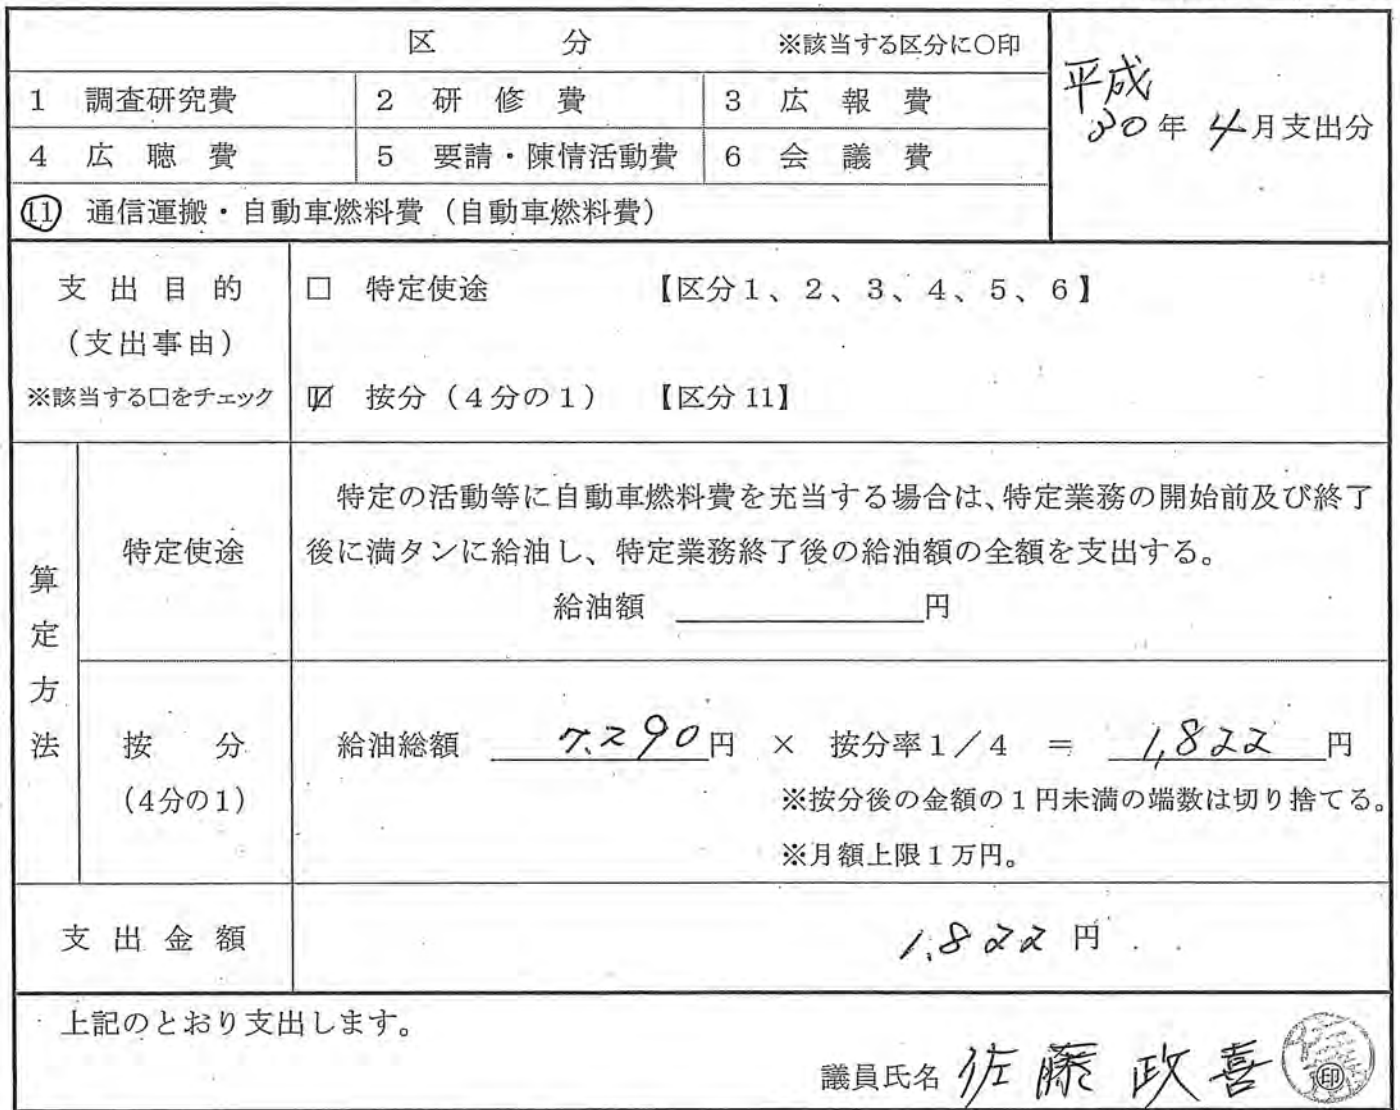 区 分 ※該当する区分に○印
平成
30年 4月支出分
1 調査研究費 2 研修費 3 広報費
4 広聴費 5 要請・陳情活動費 6 会議費
⑪ 通信運搬・自動車燃料費（自動車燃料費）
支出目的
（支出事由）
※該当する□をチェック
□ 特定使途 【区分1、2、3、4、5、6】
☑ 按分（4分の1） 【区分11】
算定方法
特定使途
特定の活動等に自動車燃料費を充当する場合は、特定業務の開始前及び終了
後に満タンに給油し、特定業務終了後の給油額の全額を支出する。
給油額 円
按分
（4分の1）
給油総額 7,290円 × 按分率1／4 ＝ 1,822円
※按分後の金額の1円未満の端数は切り捨てる。
※月額上限1万円。
支出金額 1,822円
上記のとおり支出します。
議員氏名 佐藤 政喜 ㊞